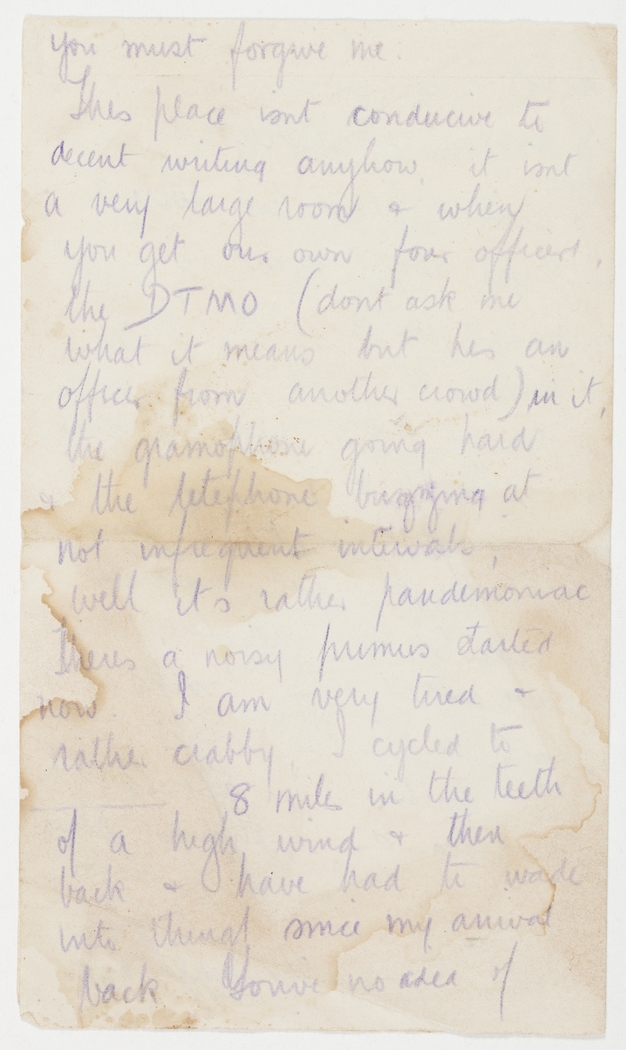 you must forgive me.
This place isnt conducive to
decent writing anyhow, it isnt
a very large room & when
you get our own four officers,
the DTMO (dont ask me
what it means but hes an
officer from another crowd) in it,
the gramophone going hard
& the telephone buzzing at
not infrequent intervals,
well it's rather pandemoniac
Theres a noisy primus started
now. I am very tired &
rather crabby I cycled to
8 miles in the teeth
of a high wind & then
back & have had to wade
into things since my arrival
back Youve no idea of